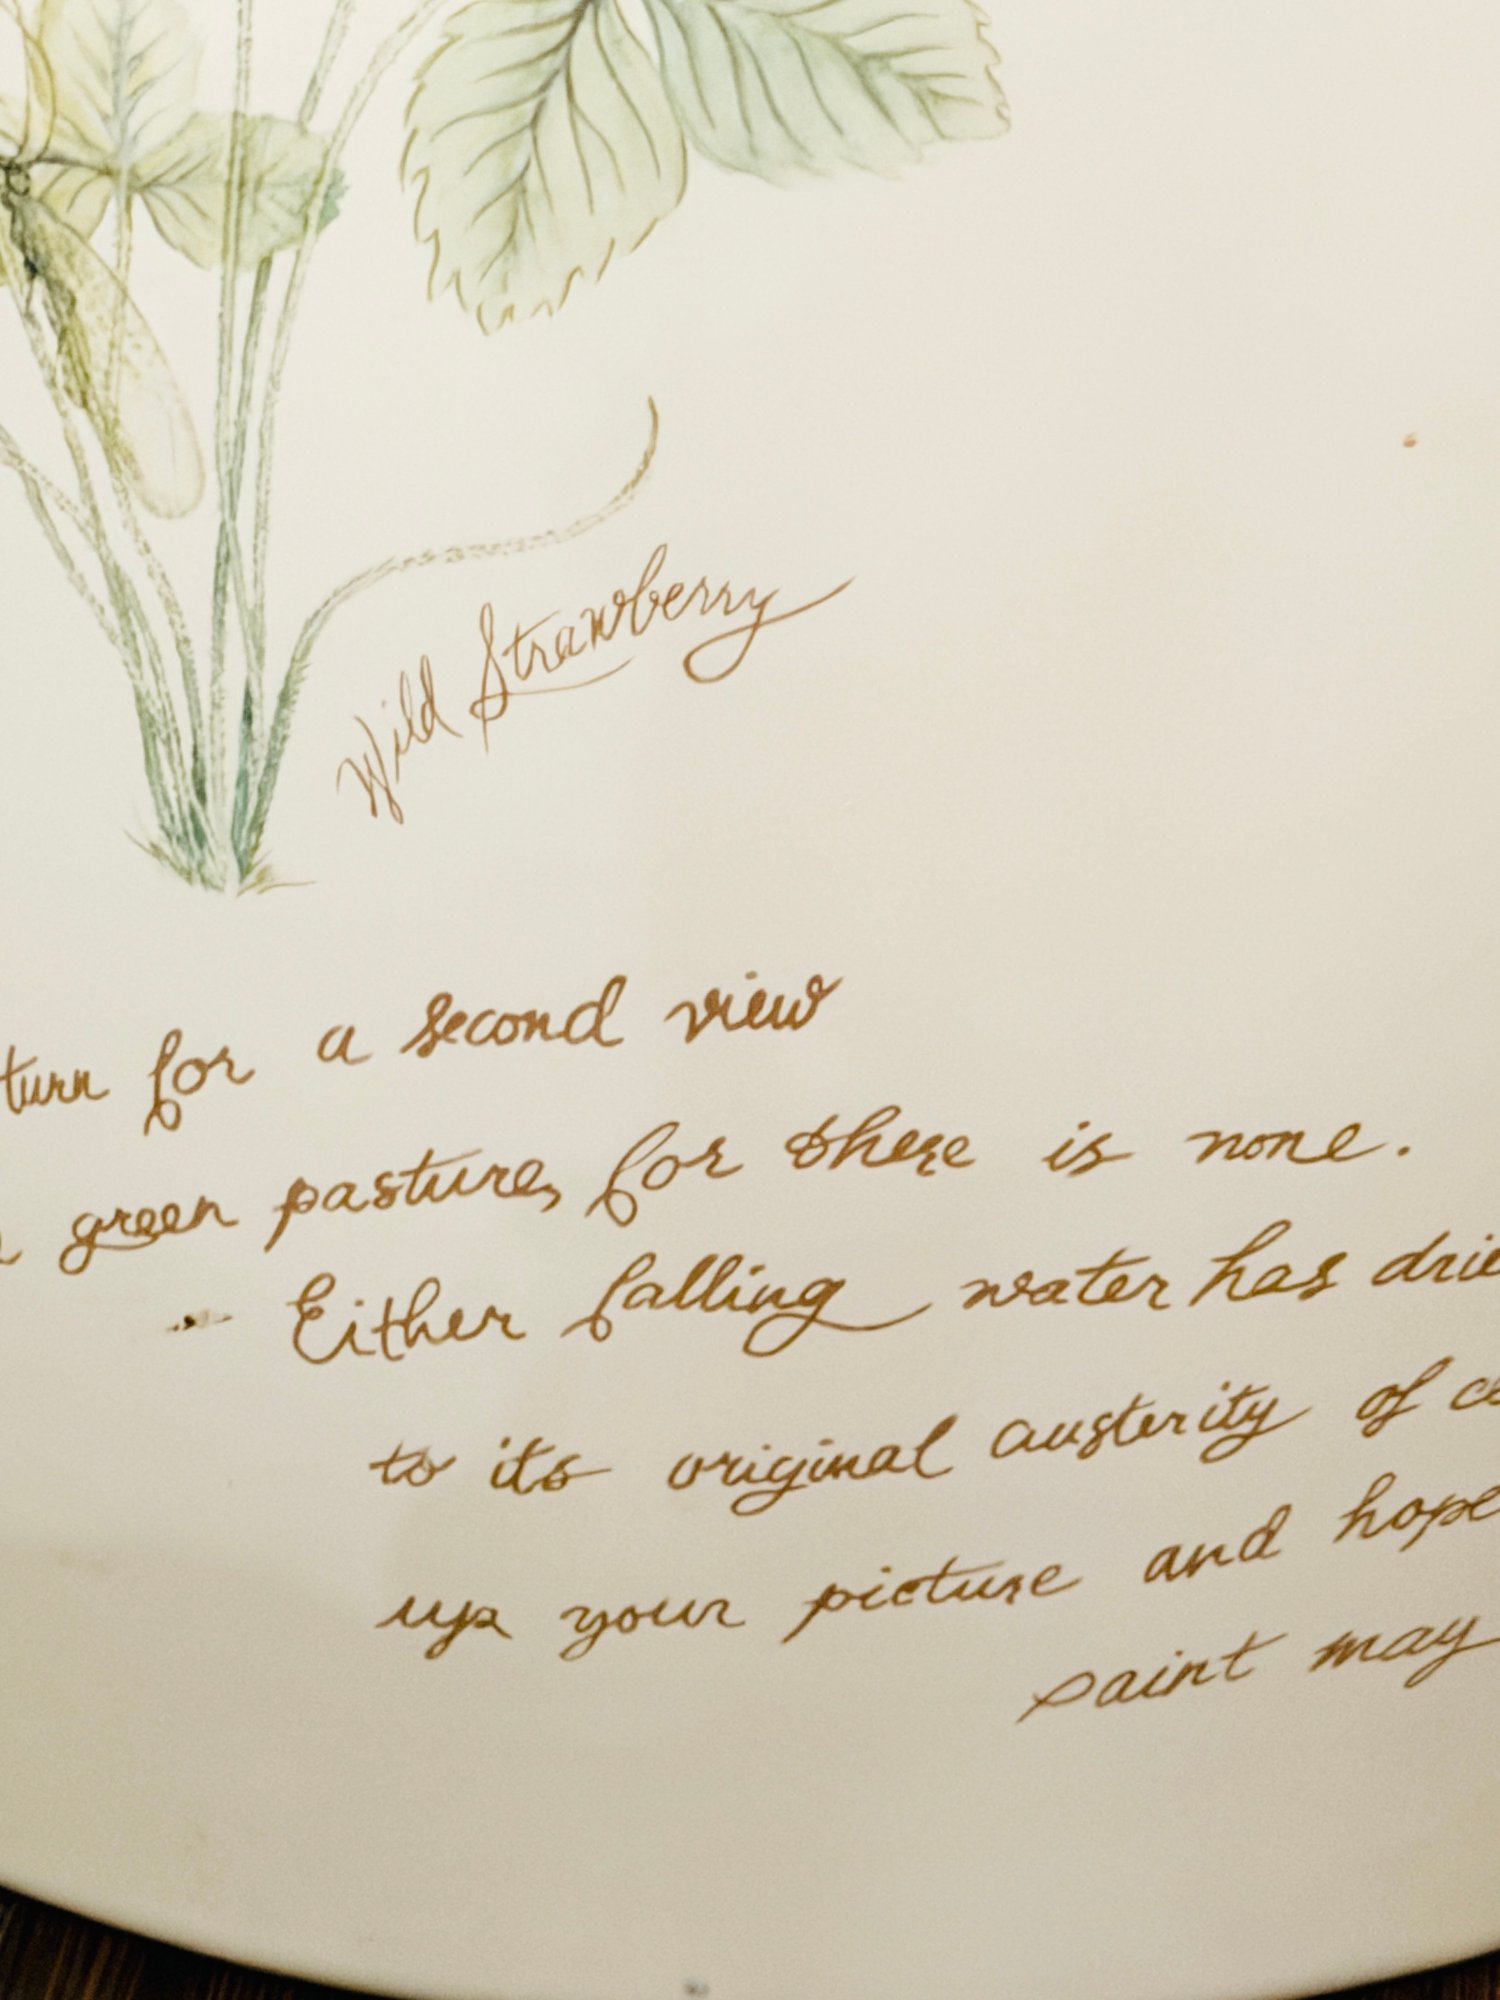 Wild Strawberry
turn for a second view
green pasture, for there is none.
Either falling water has drie
to its original austerity of
up your picture and hope
paint may